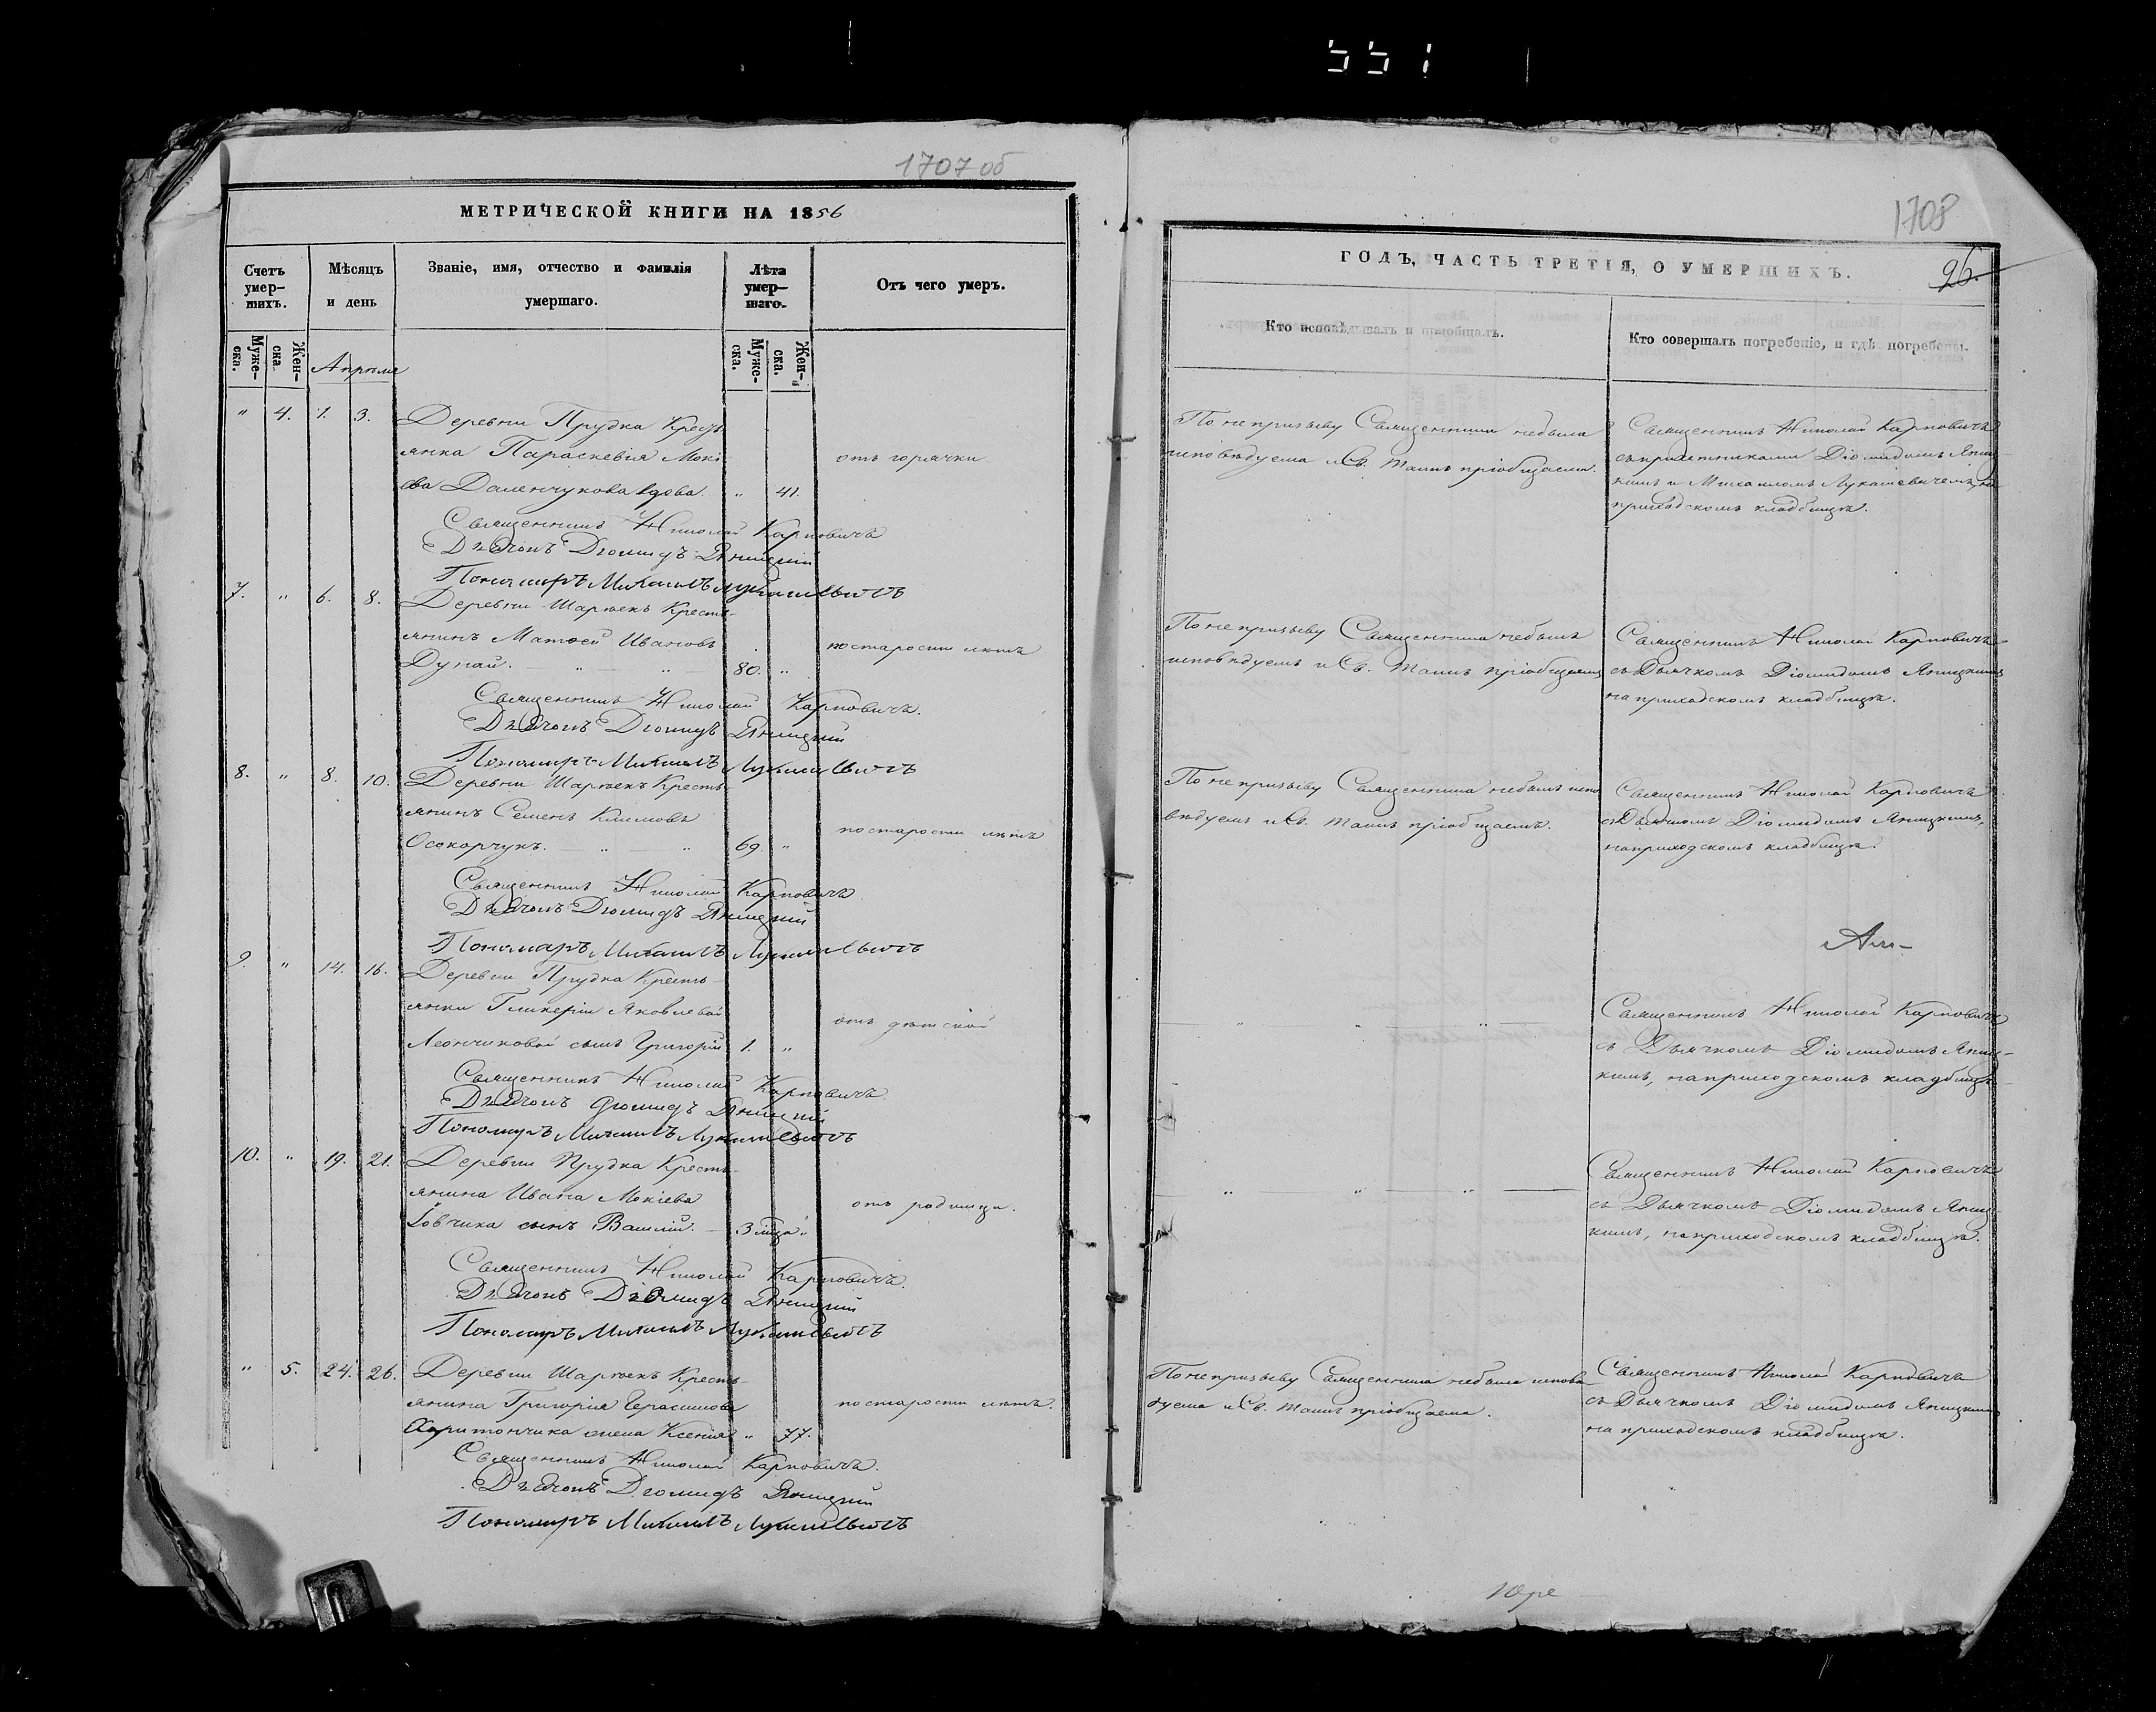 551
1707 об
МЕТРИЧЕСКОЙ КНИГИ НА 1856
Счетъ умер-шихъ.
Мѣсяцъ и день
Званіе, имя, отчество и фамилія умершаго.
Лѣта умер-шаго.
Отъ чего умеръ.
Муже-ска.
Жен-ска.
Апрѣля
Муже-ска.
Жен-ска.
" 4. 1. 3. Деревни Прудка Кресть-
янка Параскевія Мокі- отъ горячки.
ева вдова. " 41.
Священникъ Николай Карповичъ
Дьячокъ Діомидъ Яницкій
Пономаръ Михаилъ Лукашевичъ
7. " 6. 8. Деревни Шарпекъ Кресть-
янинъ Матѳей Ивановъ по старости лѣтъ
Дунай. " " 80. "
Священникъ Николай Карповичъ.
Дьячокъ Діомидъ Яницкій
Пономаръ Михаилъ Лукашевичъ
8. " 8. 10. Деревни Шарпекъ Кресть-
янинъ Семенъ Климовъ по старости лѣтъ
Осокорчукъ. " " 69. "
Священникъ Николай Карповичъ
Дьячокъ Діомидъ Яницкій
Пономаръ Михаилъ Лукашевичъ
9. " 14. 16. Деревни Прудка Кресть-
янки Гликеріи Яковлевой отъ дѣтской
Леончиковой сынъ Григорій 1. "
Священникъ Николай Карповичъ
Дьячокъ Діомидъ Яницкій
Пономаръ Михаилъ Лукашевичъ
10. " 19. 21. Деревни Прудка Кресть-
янина Ивана Мокіева отъ родимца.
Іовчика сынъ Василій. 3 мѣца "
Священникъ Николай Карповичъ.
Дьячокъ Діомидъ Яницкій
Пономаръ Михаилъ Лукашевичъ
" 5. 24. 26. Деревни Шарпекъ Кресть-
янина Григорія Герасимова по старости лѣтъ.
Харитончика жена Ксенія " 77.
Священникъ Николай Карповичъ.
Дьячокъ Діомидъ Яницкій
Пономаръ Михаилъ Лукашевичъ
1708
ГОДЪ, ЧАСТЬ ТРЕТІЯ, О УМЕРШИХЪ.
96.
Кто исповѣдывалъ и пріобщалъ.
Кто совершалъ погребеніе, и гдѣ погребены.
По непризыву Священника небыла
исповѣдуема и Св. Таинъ пріобщаема.
Священникъ Николай Карповичъ
съ причетниками Діомидомъ Яниц-
кимъ и Михаиломъ Лукашевичемъ, на
приходскомъ кладбищѣ.
По непризыву Священника небылъ
исповѣдуемъ и Св. Таинъ пріобщаемъ
Священникъ Николай Карповичъ
съ Дьячкомъ Діомидомъ Яницкимъ
на приходскомъ кладбищѣ.
По непризыву Священника небылъ испо
вѣдуемъ и Св. Таинъ пріобщаемъ.
Священникъ Николай Карповичъ
съ Дьячкомъ Діомидомъ Яницкимъ,
на приходскомъ кладбищѣ.
" " "
Священникъ Николай Карповичъ
съ Дьячкомъ Діомидомъ Яниц-
кимъ, на приходскомъ кладбищѣ
" " "
Священникъ Николай Карповичъ
съ Дьячкомъ Діомидомъ Яниц-
кимъ, на приходскомъ кладбищѣ.
По непризыву Священника небыла исповѣ
дуема и Св. Таинъ пріобщаема.
Священникъ Николай Карповичъ
съ Дьячкомъ Діомидомъ Яницкимъ
на приходскомъ кладбищѣ.